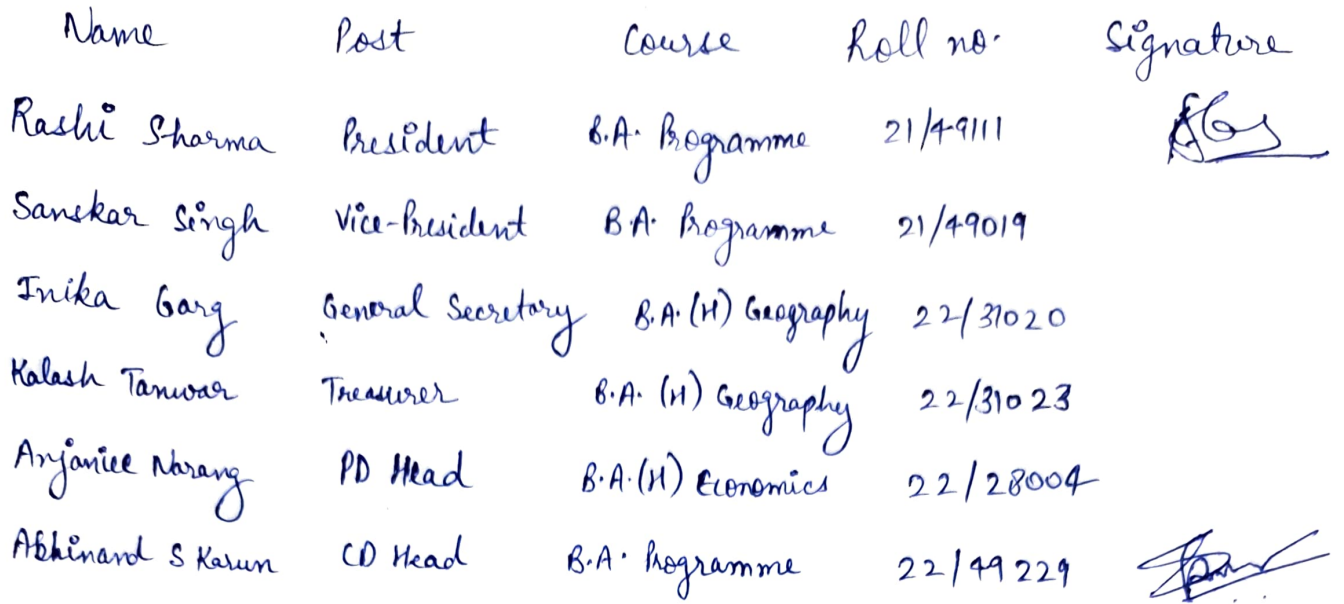 Name Post Course Roll no. Signature
Rashi Sharma President B.A. Programme 21/49111
Sanskar Singh Vice-President B.A. Programme 21/49019
Inika Garg General Secretary B.A. (H) Geography 22/31020
Kalash Tanwar Treasurer B.A. (H) Geography 22/31023
Anjaniee Narang PD Head B.A. (H) Economics 22/28004
Abhinand S Karun CD Head B.A. Programme 22/49229